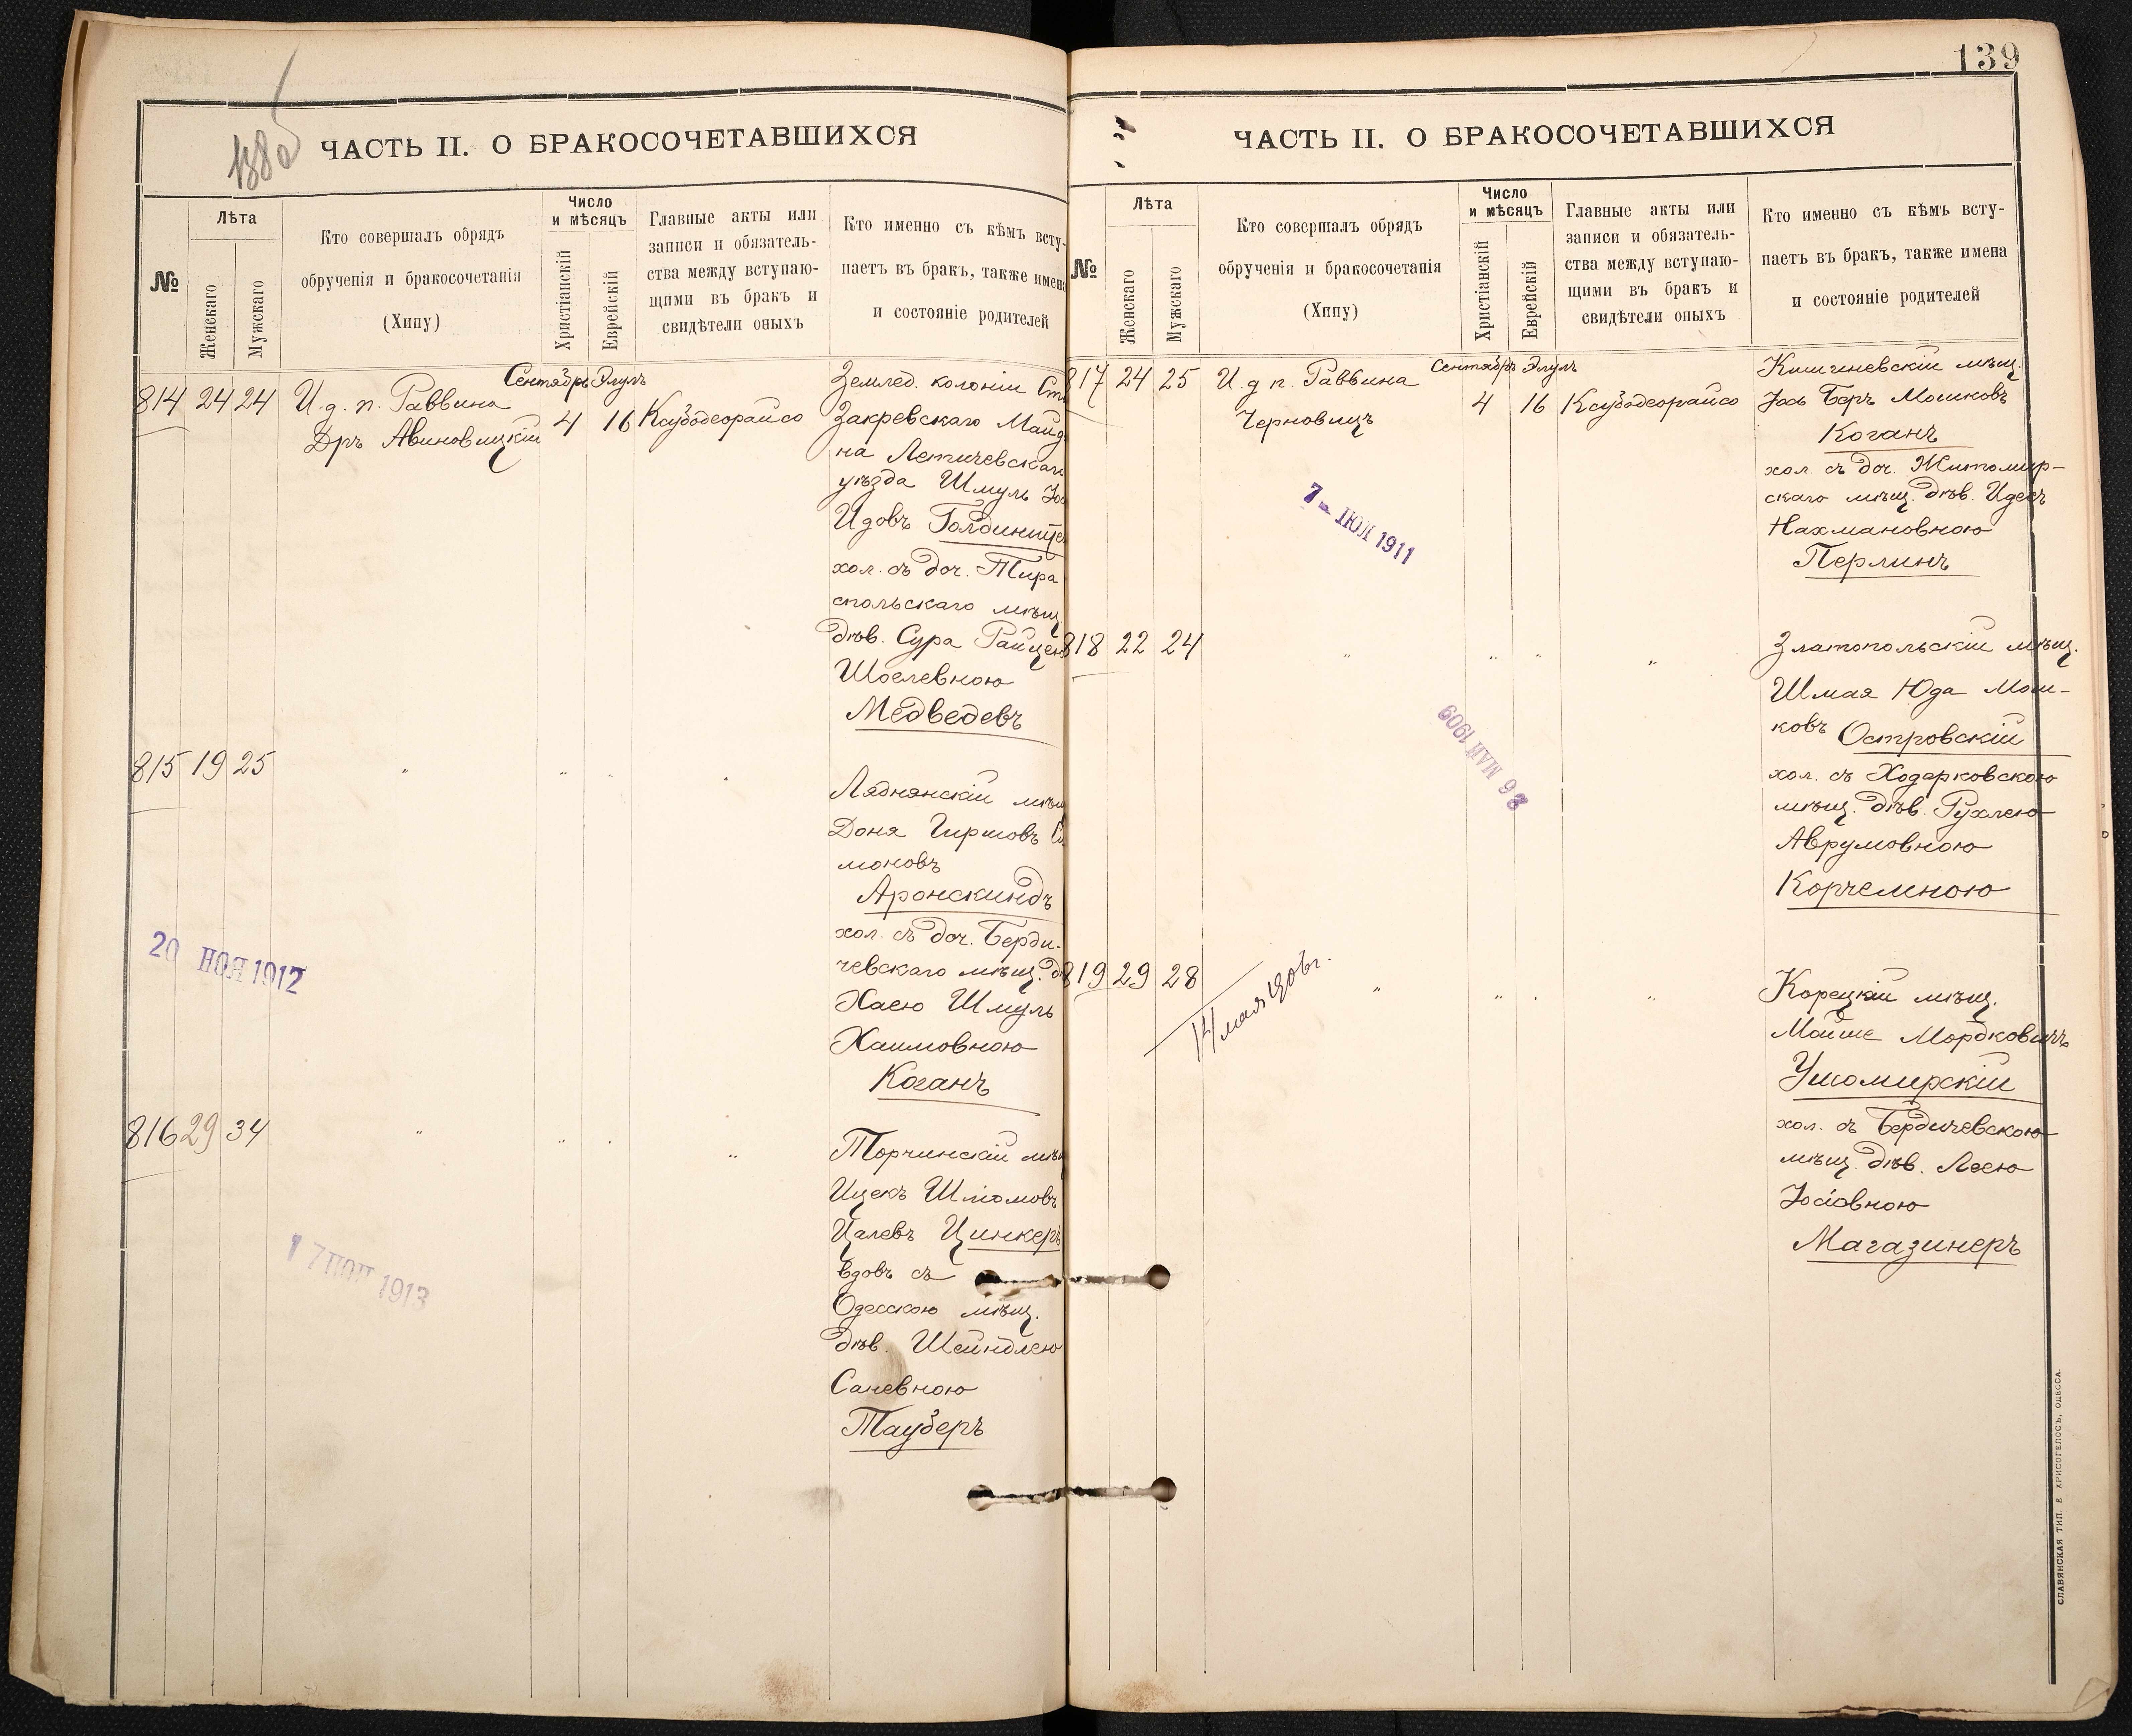 ЧАСТЬ II. О БРАКОСОЧЕТАВШИХСЯ
№
Лѣта
Женскаго
Мужскаго
Кто совершалъ обрядъ
обрученія и бракосочетанія
(Хипу)
Число
и мѣсяцъ
Христіанскій
Еврейскій
Главные акты или
записи и обязатель-
ства между вступаю-
щими въ бракъ и
свидѣтели оныхъ
Кто именно съ кѣмъ всту-
паетъ въ бракъ, также имена
и состояніе родителей
814 24 24
И. д. п. Раввина
Дръ Авиновицкій
Сентябрь Элулъ
4 16
Ксубодеорайсо
Землед. колоніи Ст
Закревскаго Майд
на Летичевскаго
уѣзда Шмуль
Идовъ
хол. съ доч. Тира
спольскаго мѣщ.
дѣв. Сура Райцею
Шоелевною
Медведевъ
815 19 25
" " " "
Ляднянскій мѣщ
Доня Гиршовъ
моновъ
Аронскиндъ
хол. съ доч. Берди-
чевскаго мѣщ. д
Хаею Шмуль
Хаимовною
Коганъ
20 НОЯ 1912
816 29 34
" " " "
Торчинскій мѣщ
Ицекъ Шломовъ
Цалевъ Цинкеръ
вдовъ съ
Одесскою мѣщ.
дѣв. Шейндлею
Саневною
Тауберъ
1913
139
ЧАСТЬ II. О БРАКОСОЧЕТАВШИХСЯ
№
Лѣта
Женскаго
Мужскаго
Кто совершалъ обрядъ
обрученія и бракосочетанія
(Хипу)
Число
и мѣсяцъ
Христіанскій
Еврейскій
Главные акты или
записи и обязатель-
ства между вступаю-
щими въ бракъ и
свидѣтели оныхъ
Кто именно съ кѣмъ всту-
паетъ въ бракъ, также имена
и состояніе родителей
817 24 25
И. д п. Раввина
Черновицъ
Сентябрь Элулъ
4 16
Ксубодеорайсо
Кишиневскій мѣщ.
Іось Беръ Мошковъ
Коганъ
хол. съ доч. Житомир-
скаго мѣщ. дѣв. Идесъ
Нахмановною
Перлинъ
7 - ІЮЛ 1911
818 22 24
" " " "
Златопольскій мѣщ.
Шмая Юда Мош-
ковъ Островскій
хол. съ Ходорковскою
мѣщ. дѣв. Рухлею
Аврумовною
Корчемною
26 МАЙ 1909
819 29 28
14 мая 1906 г.
" " " "
Корецкій мѣщ.
Мойше Мордковичъ
Ушомирскій
хол. съ Бердичевскою
мѣщ. дѣв. Леею
Іосіовною
Магазинеръ
СЛАВЯНСКАЯ ТИП. Е ХРИСОГЕЛОСЪ, ОДЕССА.